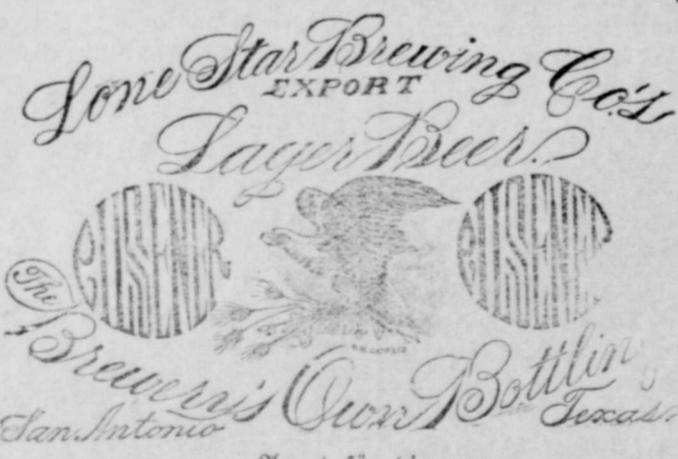 Lone Star Brewing Co.'s
EXPORT
Lager Beer.
PILSENER PILSENER
The Brewery's Own Bottling
San Antonio Texas